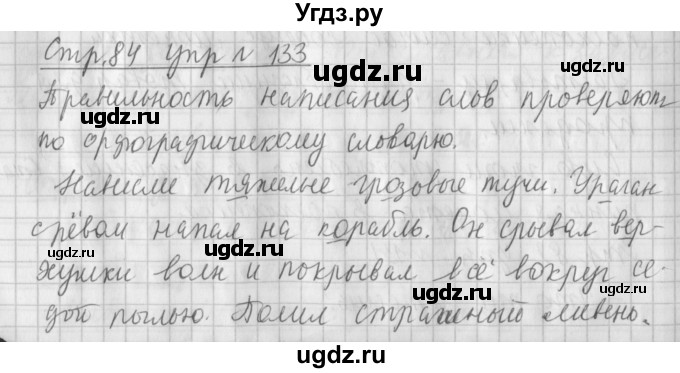 Угдз.ру
Стр. 84 упр № 133
Правильность написания слов проверяют
по орфографическому словарю.
Нависли тяжелые грозовые тучи. Ураган
с рёвом напал на корабль. Он срывал вер-
хушки волн и покрывал всё вокруг се-
дой пылью. Полил страшный ливень.
ugdz.ru
ugdz.ru
ugdz.ru
ugdz.ru
ugdz.ru
ugdz.ru
ugdz.ru
ugdz.ru
ugdz.ru